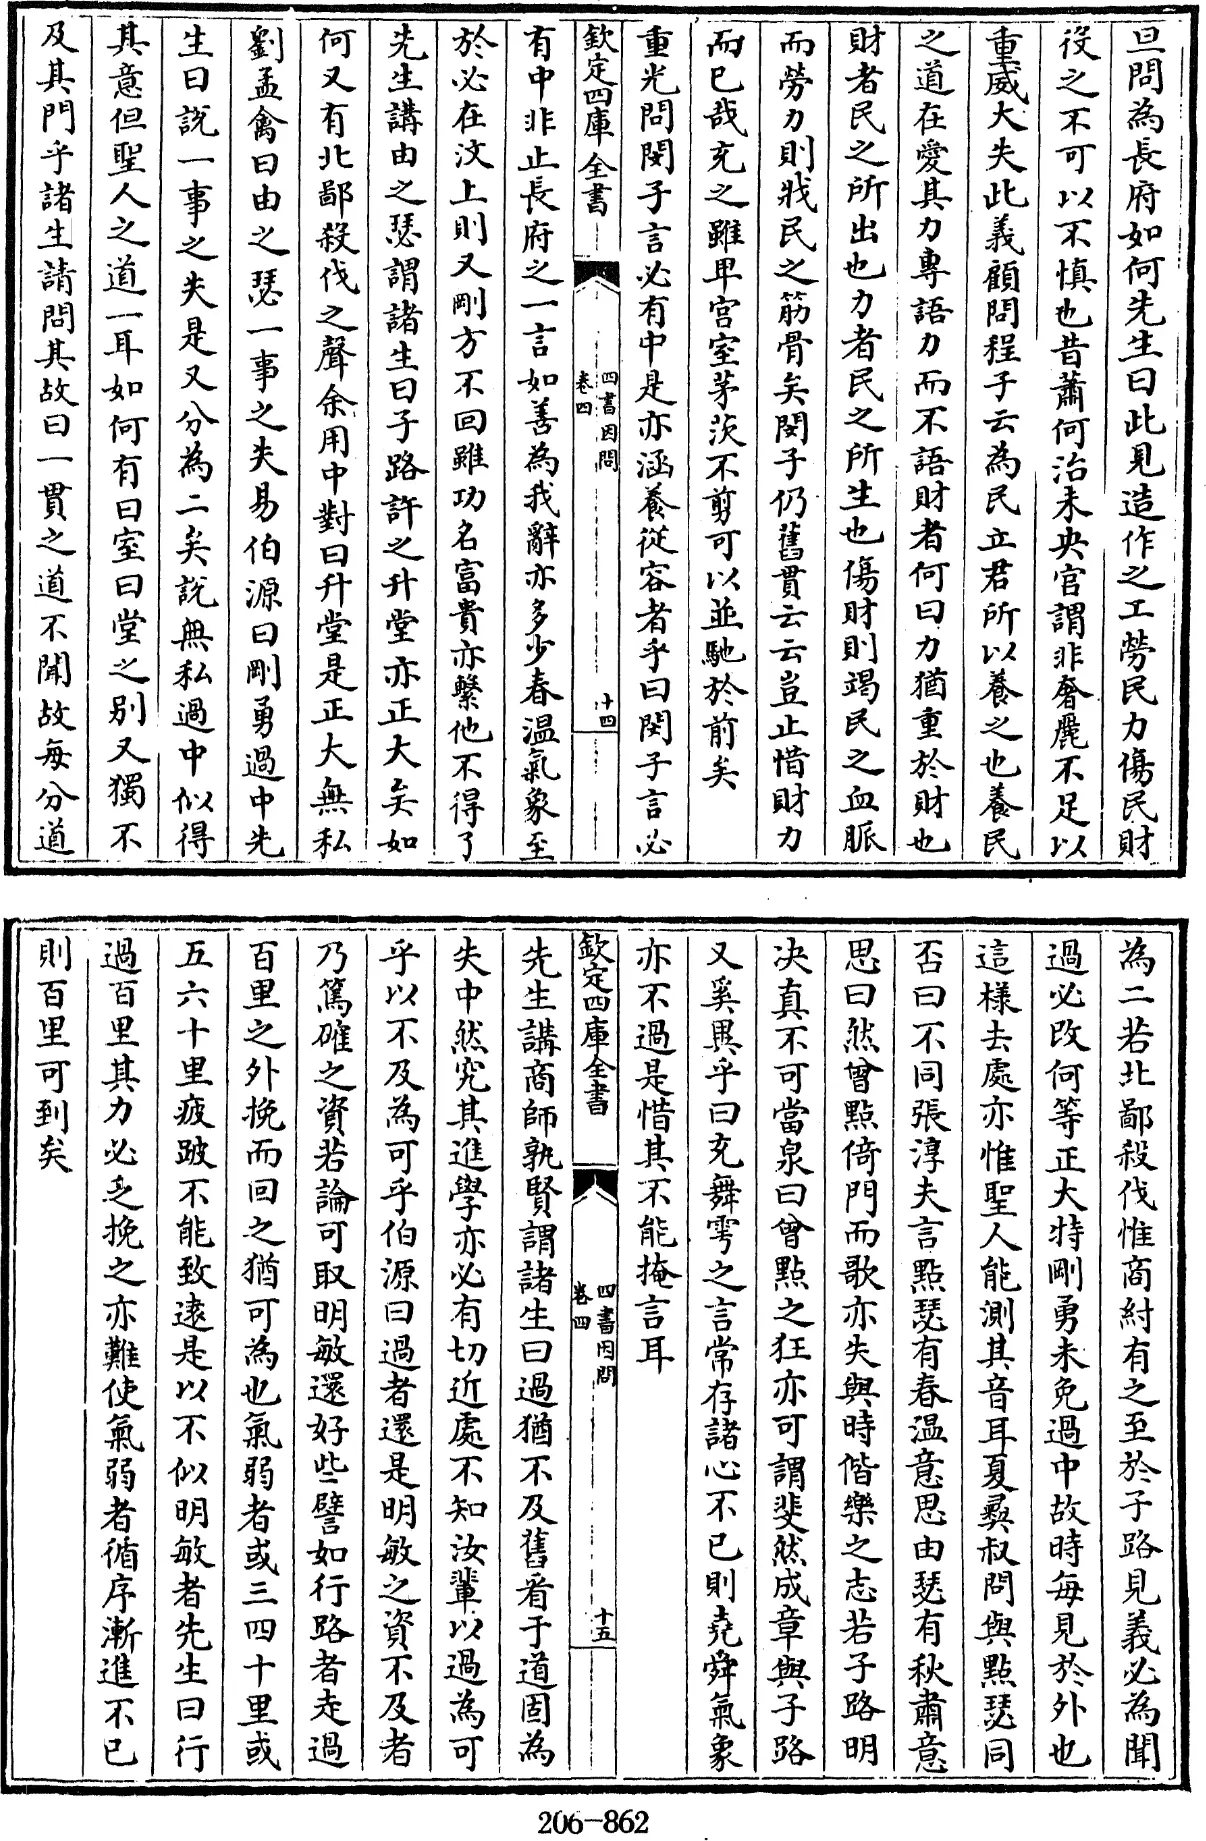 旦問為長府如何先生曰此見造作之工勞民力傷民財
役之不可以不慎也昔蕭何治未央宫謂非奢麗不足以
重威大失此義顧問程子云為民立君所以養之也養民
之道在愛其力專語力而不語財者何曰力猶重於財也
財者民之所出也力者民之所生也傷財則竭民之血脈
而勞力則戕民之筋骨矣閔子仍舊貫云云豈止惜財力
而已哉充之雖卑宫室茅茨不剪可以並馳於前矣
重光問閔子言必有中是亦涵養從容者乎曰閔子言必
欽定四庫全書
四書因問
卷四
十四
有中非止長府之一言如善為我辭亦多少春温氣象至
於必在汶上則又剛方不回雖功名富貴亦繫他不得了
先生講由之瑟謂諸生曰子路許之升堂亦正大矣如
何又有北鄙殺伐之聲余用中對曰升堂是正大無私
劉孟禽曰由之瑟一事之失易伯源曰剛勇過中先
生曰説一事之失是又分為二矣説無私過中似得
其意但聖人之道一耳如何有曰室曰堂之别又獨不
及其門乎諸生請問其故曰一貫之道不聞故每分道
為二若北鄙殺伐惟商紂有之至於子路見義必為聞
過必改何等正大特剛勇未免過中故時每見於外也
這樣去處亦惟聖人能測其音耳夏彛叔問與點瑟同
否曰不同張淳夫言點瑟有春温意思由瑟有秋肅意
思曰然曾點倚門而歌亦失與時偕樂之志若子路明
决真不可當泉曰曾點之狂亦可謂斐然成章與子路
又奚異乎曰充舞雩之言常存諸心不已則堯舜氣象
亦不過是惜其不能掩言耳
欽定四庫全書
四書因問
卷四
十五
先生講商師孰賢謂諸生曰過猶不及舊看于道固為
失中然究其進學亦必有切近處不知汝輩以過為可
乎以不及為可乎伯源曰過者還是明敏之資不及者
乃篤確之資若論可取明敏還好些譬如行路者走過
百里之外挽而回之猶可為也氣弱者或三四十里或
五六十里疲跛不能致逺是以不似明敏者先生曰行
過百里其力必乏挽之亦難使氣弱者循序漸進不已
則百里可到矣
206-862